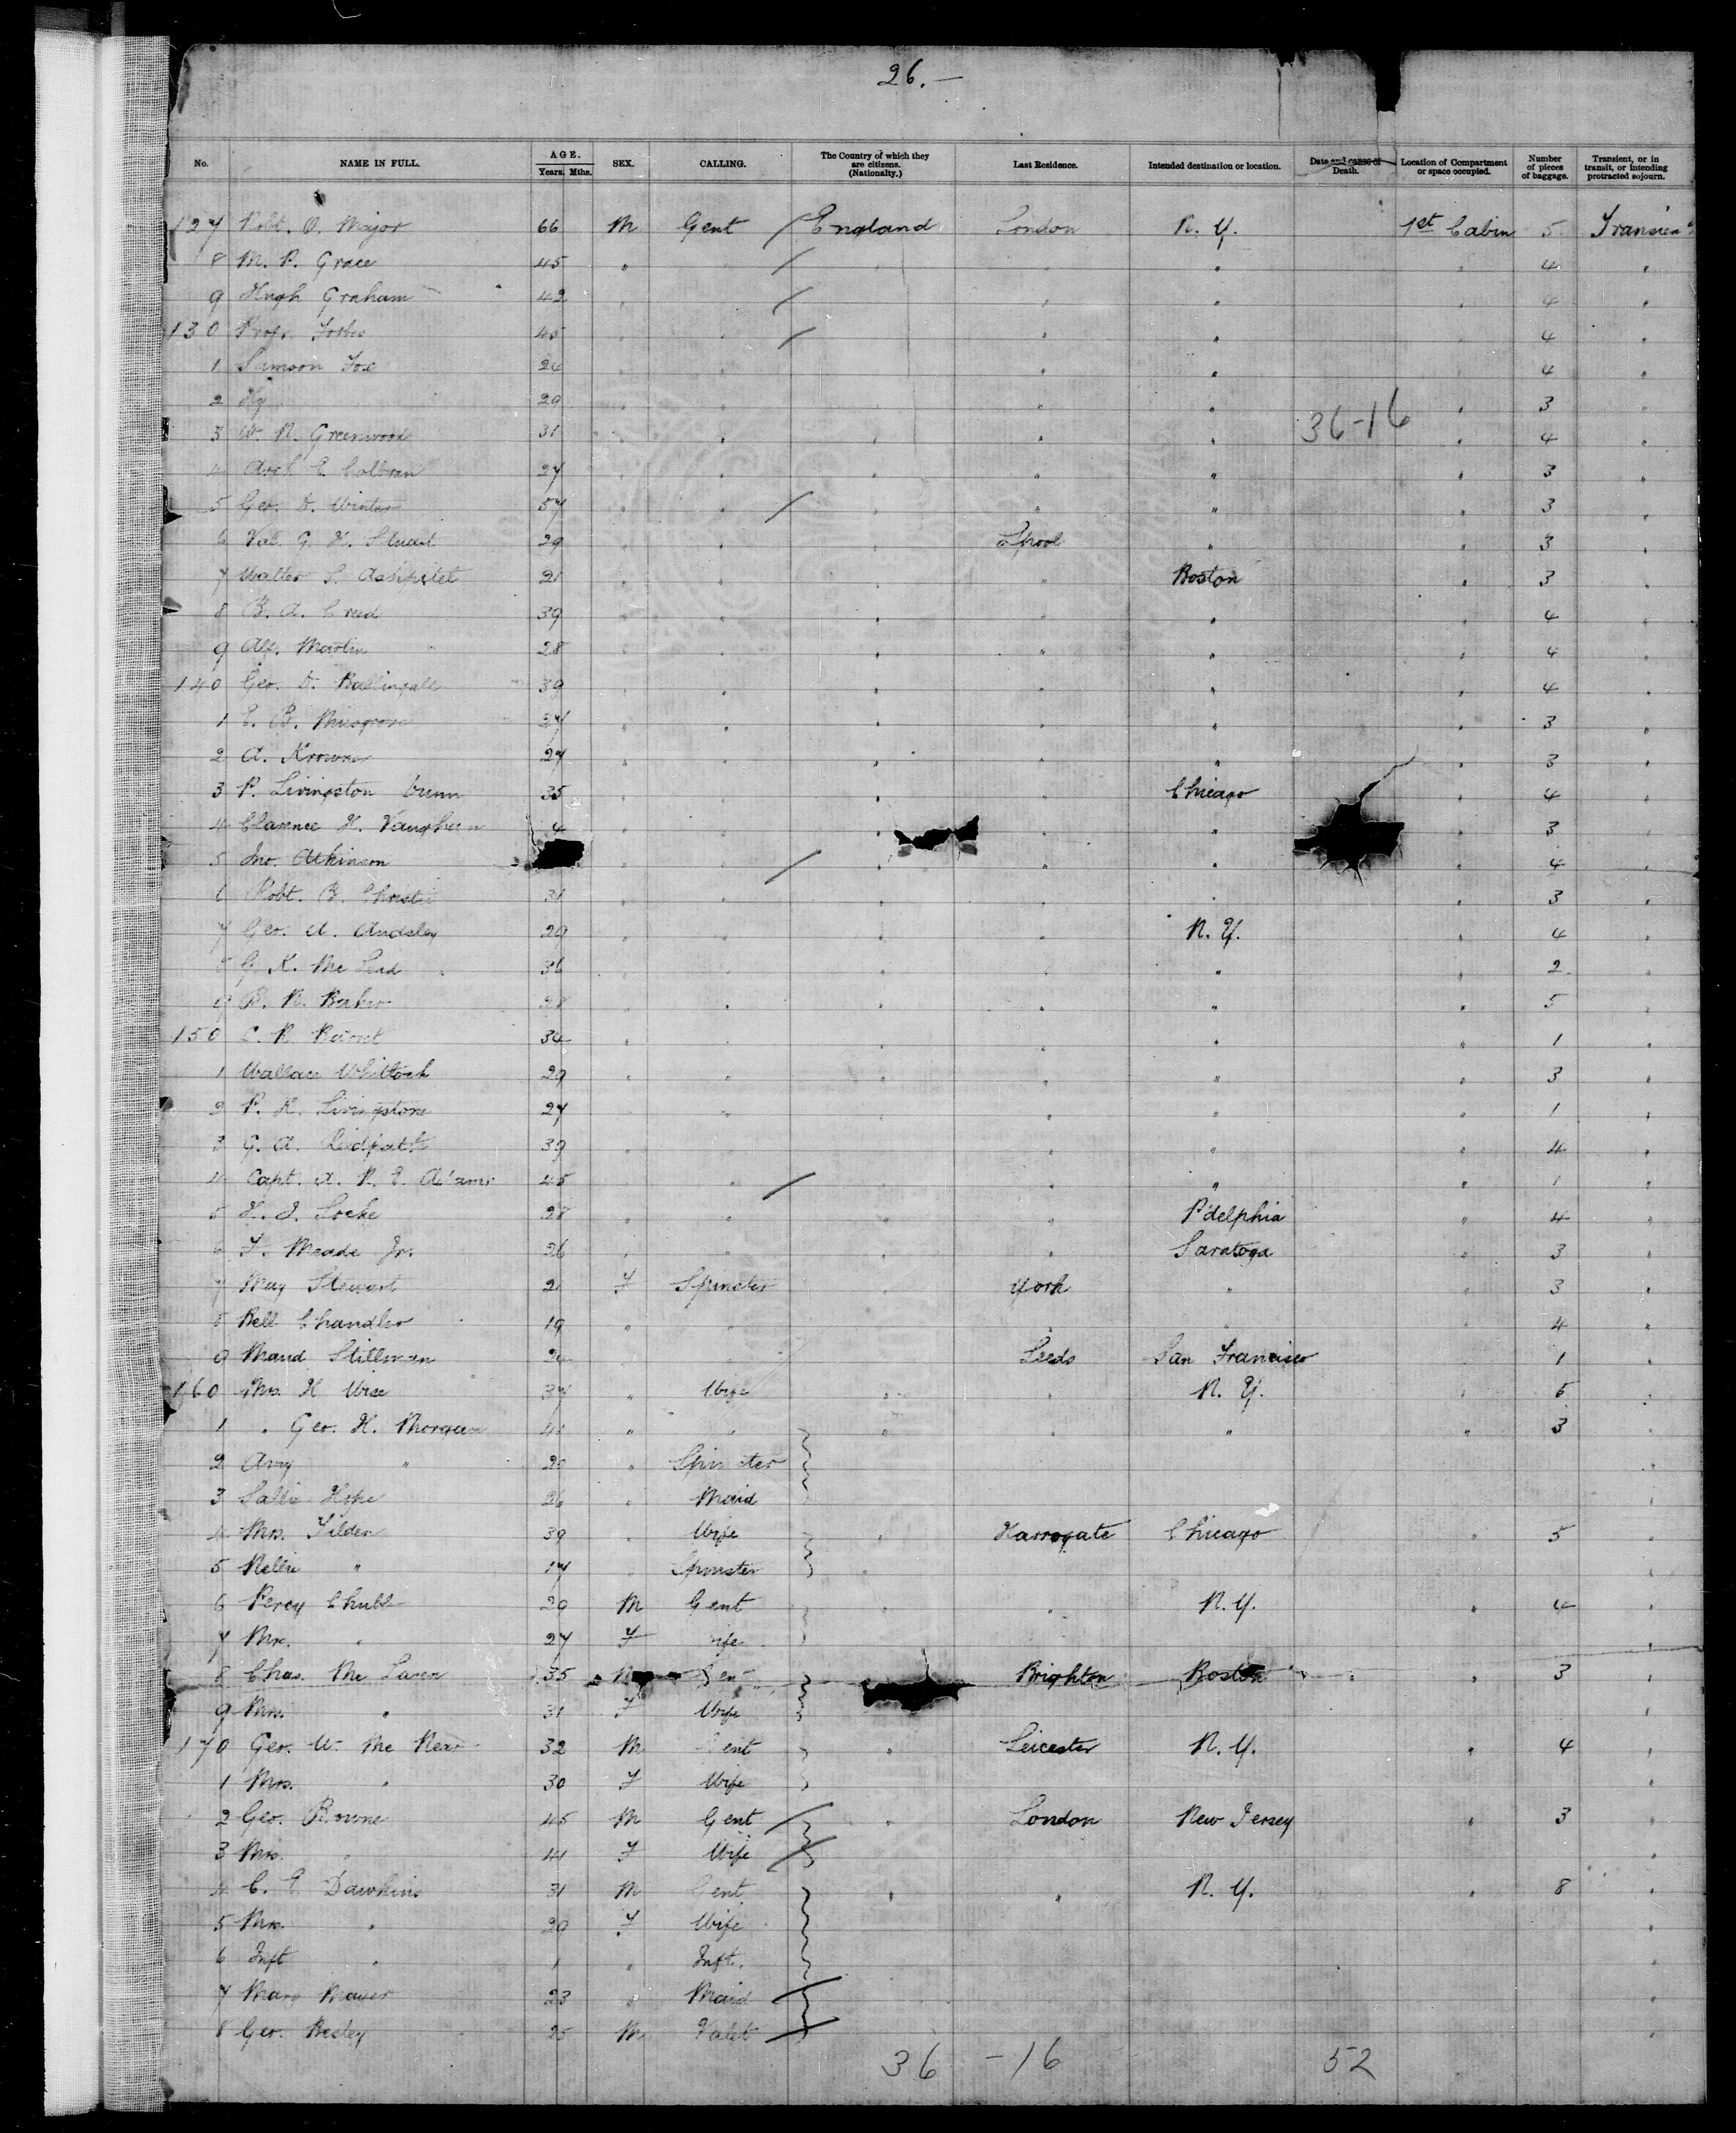 26. —
No. NAME IN FULL. AGE. Years. Mths. SEX. CALLING. The Country of which they are citizens. (Nationalty.) Last Residence. Intended destination or location. Date and cause of Death. Location of Compartment or space occupied. Number of pieces of baggage. Transient, or in transit, or intending protracted sojourn.
127 Robt. O. Major 66 M Gent / England London N. Y. 1st Cabin 5 Transient
8 M. P. Grace 45 " / " 4 "
9 Hugh Graham 42 / " " 4 "
130 Profr. Forbes 45 / " " 4 "
1 Samson Fox 24 " " 4 "
2 Hy 29 " " 3 "
36-16
3 W. R. Greenwood 31 " " 4 "
4 Arch E. 27 " " 3 "
5 Geo. D. Winter 57 / " " 3 "
6 Val. G. H. Stuart 29 Lpool " 3 "
7 Walter S. 21 " Boston 3 "
8 B. A. Creed 39 " " 4 "
9 Alf. Martin 28 " " 4 "
140 Geo. D. Ballingall 39 " " 4 "
1 E. B. Musgrove 37 " " 3 "
2 A. 27 " " 3 "
3 P. Livingston 35 " Chicago 4 "
4 Clarence H. Vaughan 4 " " 3 "
5 Jno. Atkinson / " " 4 "
6 Robt. B. Christie 31 " " 3 "
7 Geo. A. Audsley 29 " N. Y. 4 "
8 G. K. 36 " " 2 "
9 B. N. Baker 28 " " 5 "
150 C. R. 34 " " 1 "
1 Wallace Whitlock 29 " " 3 "
2 P. H. Livingstone 27 " " 1 "
3 G. A. Redpath 39 " " 4 "
4 Capt. A. R. E. Adams 45 / " " 1 "
5 H. J. Locke 28 " P'delphia 4 "
6 F. Meade Jr. 26 " Saratoga 3 "
7 May Stewart 2 F Spinster York " 3 "
8 Bell Chandler 19 " " 4 "
9 Maud Stillman 24 Leeds San Francisco 1 "
160 Mrs. H Wise 37 " Wife " N. Y. 5 "
1 " Geo. H. Morgan 41 " " " " " 3 "
2 Amy " 20 " Spinster "
3 Sallie 26 " Maid "
4 Mrs. Tilden 39 " Wife " Harrogate Chicago " 5 "
5 Nellie " 17 " Spinster "
6 Percy Chubb 29 M Gent " " N. Y. " 4 "
7 Mrs. " 27 F Wife "
8 Chas. Mc Laren 35 M Gent Brighton Boston " 3 "
9 Mrs. " 31 F Wife "
170 Geo. W. Mc Near 32 M Gent " Leicester N. Y. " 4 "
1 Mrs. " 30 F Wife "
2 Geo. Browne 45 M Gent / " London New Jersey " 3 "
3 Mrs. " 41 F Wife / "
4 C. E. Dawkins 31 M Gent " " N. Y. " 8 "
5 Mrs. " 29 F Wife "
6 Inft " 1 " Inft. "
7 Mary Mayer 23 " Maid / "
8 Geo. Beeley 25 M Valet / "
36 - 16 52